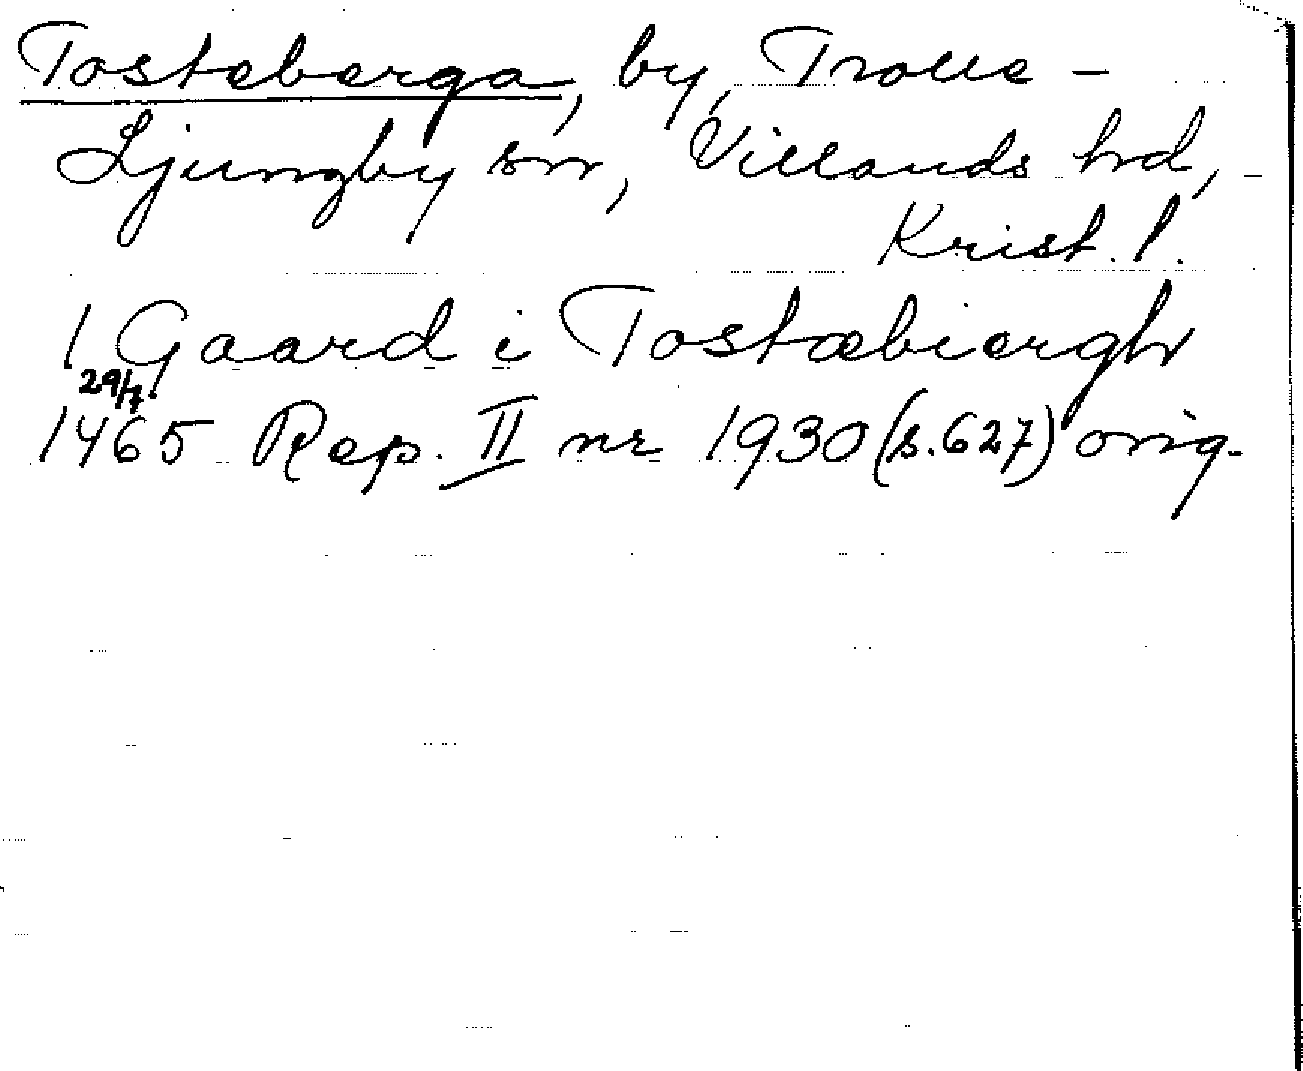 Tosteberga, by, Trolle-
Ljungby sn, Villands hrd,
Krist. l.
1 Gaard i Tostæbiergh
29/7
1465 Rep. II nr 1930 (s. 627) orig.